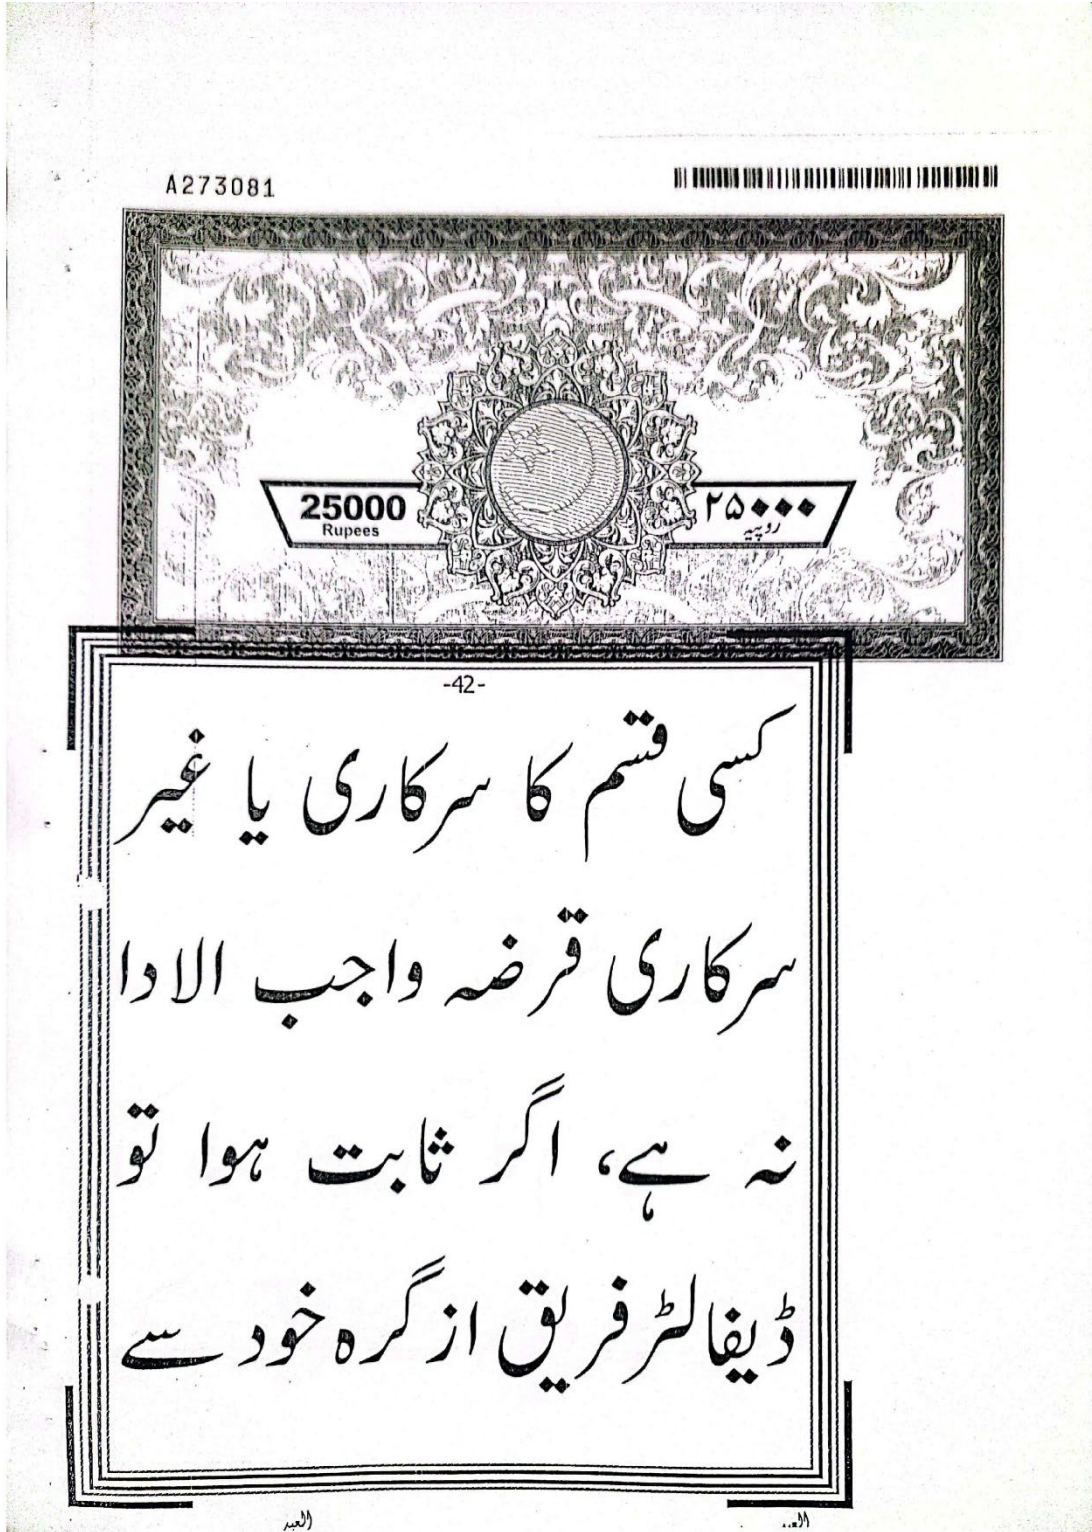 A273081
25000
Rupees
۲۵۰۰۰
روپیہ
-42-
کسی قسم کا سرکاری یا غیر
سرکاری قرضہ واجب الادا
نہ ہے، اگر ثابت ہوا تو
ڈیفالٹر فریق از گرہ خود سے
العبد